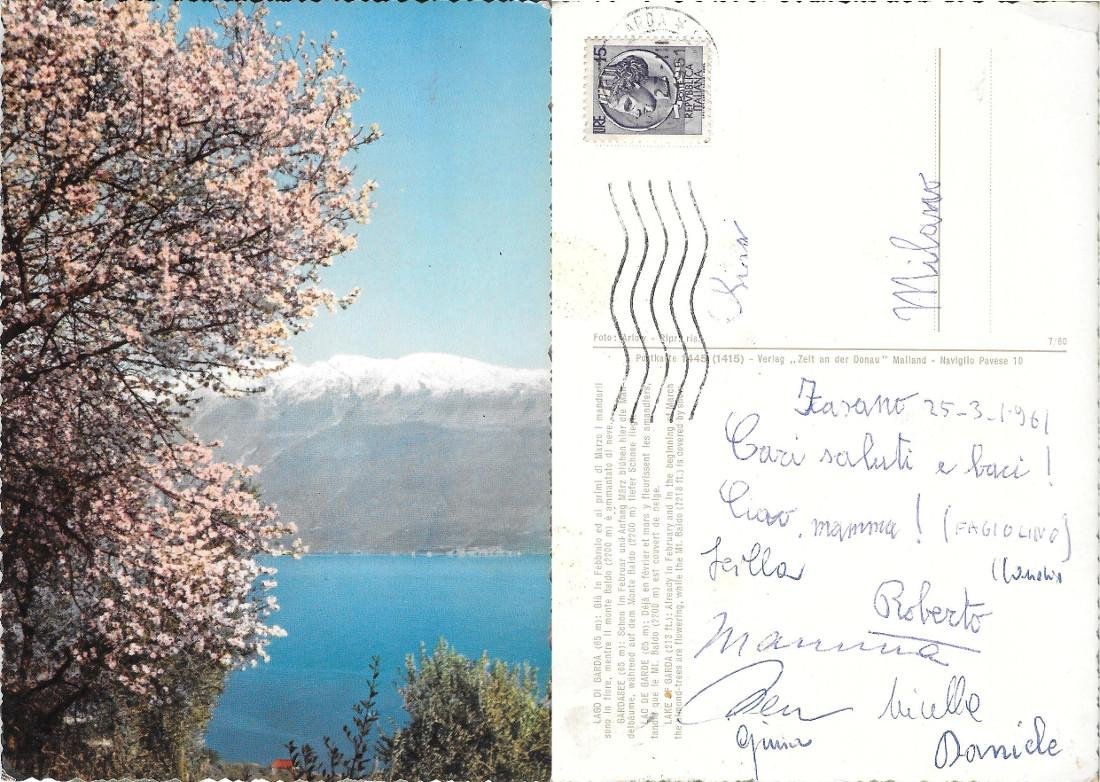 ARDA ★
LIRE 15
POSTE
REPUBBLICA
ITALIANA
Milano
Foto:
7/60
Postkarte 1445 (1415) - Verlag „Zeit an der Donau" Mailand - Naviglio Pavese 10
LAGO DI GARDA (65 m): Già in Febbraio ed ai primi di Marzo i mandorli
sono in fiore, mentre il monte Baldo (2200 m) è ammantato di neve.
GARDASEE (65 m): Schon im Februar und Anfang März blühen hier die Man-
delbäume, während auf dem Monte Baldo (2200 m) tiefer Schnee liegt.
LAC DE GARDE (65 m): Déjà en février et mars y fleurissent les amandiers,
tandis que le Mt. Baldo (2200 m) est couvert de neige.
LAKE OF GARDA (213 ft.): Already in February and in the beginning of March
the almond-trees are flowering, while the Mt. Baldo (7218 ft.) is covered by snow.
25-3-1961
Cari saluti e baci
Ciao mamma. (FAGIOLINO)
Roberto
Mamma
Daniele